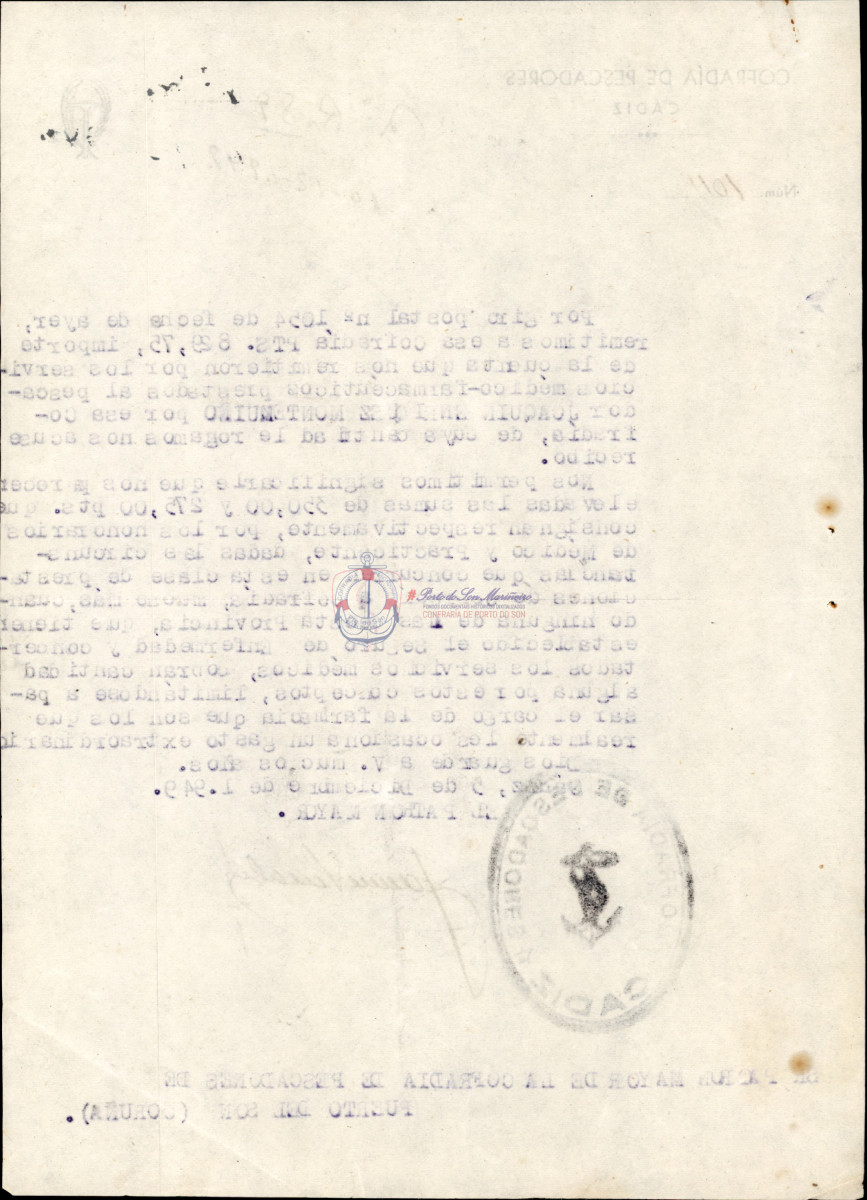 COFRADÍA DE PESCADORES
CÁDIZ
Núm. 1011
Por giro postal nº 1054 de fecha de ayer,
remitimos a esa Cofradía PTS. 829,75, importe
de la cuenta que nos remitieron por los servi-
cios médico-farmacéuticos prestados al pesca-
dor JOAQUIN por esa Co-
fradía, de cuya cantidad le rogamos nos acuse
recibo.
Nos permitimos significarle que nos parecen
elevadas las sumas de 350,00 y 275,00 pts. que
consignan respectivamente, por los honorarios
de Médico y Practicante, dadas las circuns-
tancias que concurren en esta clase de presta-
ciones Cofradía, mucho más, cuan-
do ninguna de las de esta Provincia, que tienen
establecido el Seguro de Enfermedad y concer-
tados los servicios médicos, cobran cantidad
alguna por estos conceptos, limitándose a pa-
sar el cargo de la farmacia que son los que
realmente les ocasiona un gasto extraordinario
Dios guarde a V. muchos años.
Cádiz, 5 de Diciembre de 1.949.
EL PATRON MAYOR.
COFRADÍA DE PESCADORES
CADIZ
SR PATRON MAYOR DE LA COFRADIA DE PESCADORES DE
PUERTO DEL SON (CORUÑA).
Porto do Son Mariñeiro
FONDOS DOCUMENTAIS HISTÓRICOS DIXITALIZADOS
CONFRARÍA DE PORTO DO SON